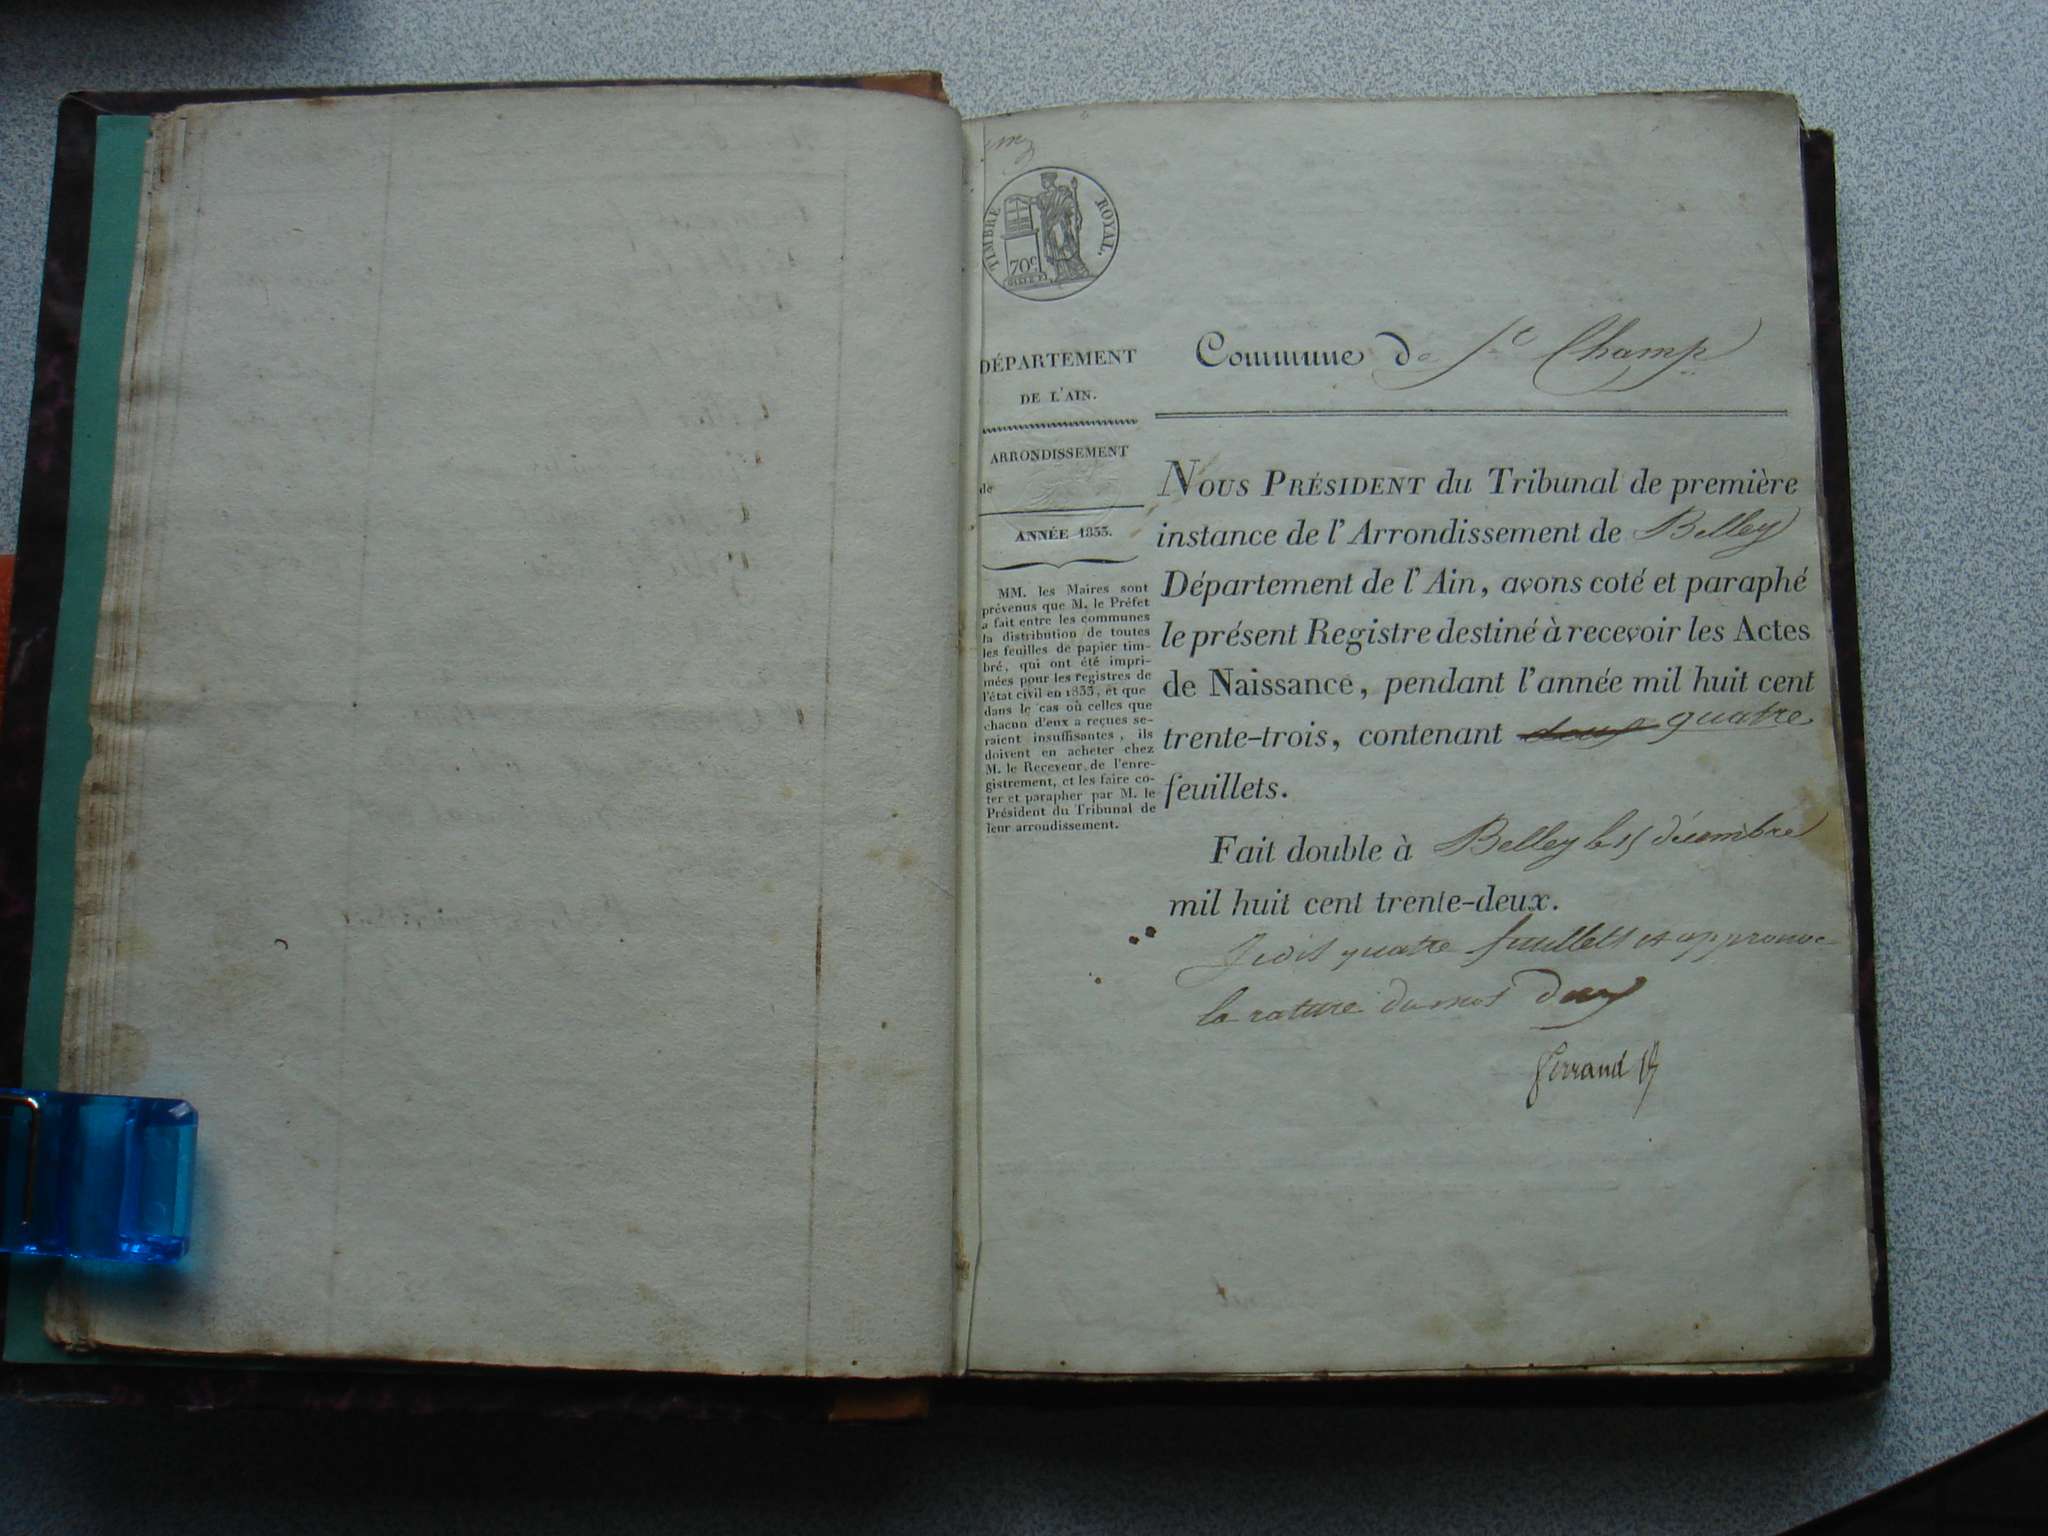 TIMBRE ROYAL.
70c
DÉPARTEMENT
DE L'AIN.
ARRONDISSEMENT
de
ANNÉE 1833.
MM. les Maires sont
prévenus que M. le Préfet
a fait entre les communes
la distribution de toutes
les feuilles de papier tim-
bré, qui ont été impri-
mées pour les registres de
l'état civil en 1833, et que
dans le cas où celles que
chacun d'eux a reçues se-
raient insuffisantes, ils
doivent en acheter chez
M. le Receveur de l'enre-
gistrement, et les faire co-
ter et parapher par M. le
Président du Tribunal de
leur arrondissement.
Commune de St Champ
NOUS PRÉSIDENT du Tribunal de première
instance de l'Arrondissement de Belley
Département de l'Ain, avons coté et paraphé
le présent Registre destiné à recevoir les Actes
de Naissance, pendant l'année mil huit cent
trente-trois, contenant deux quatre
feuillets.
Fait double à Belley le 15 décembre
mil huit cent trente-deux.
Je dis quatre feuillets et approuve
la rature du mot deux
Ferrand